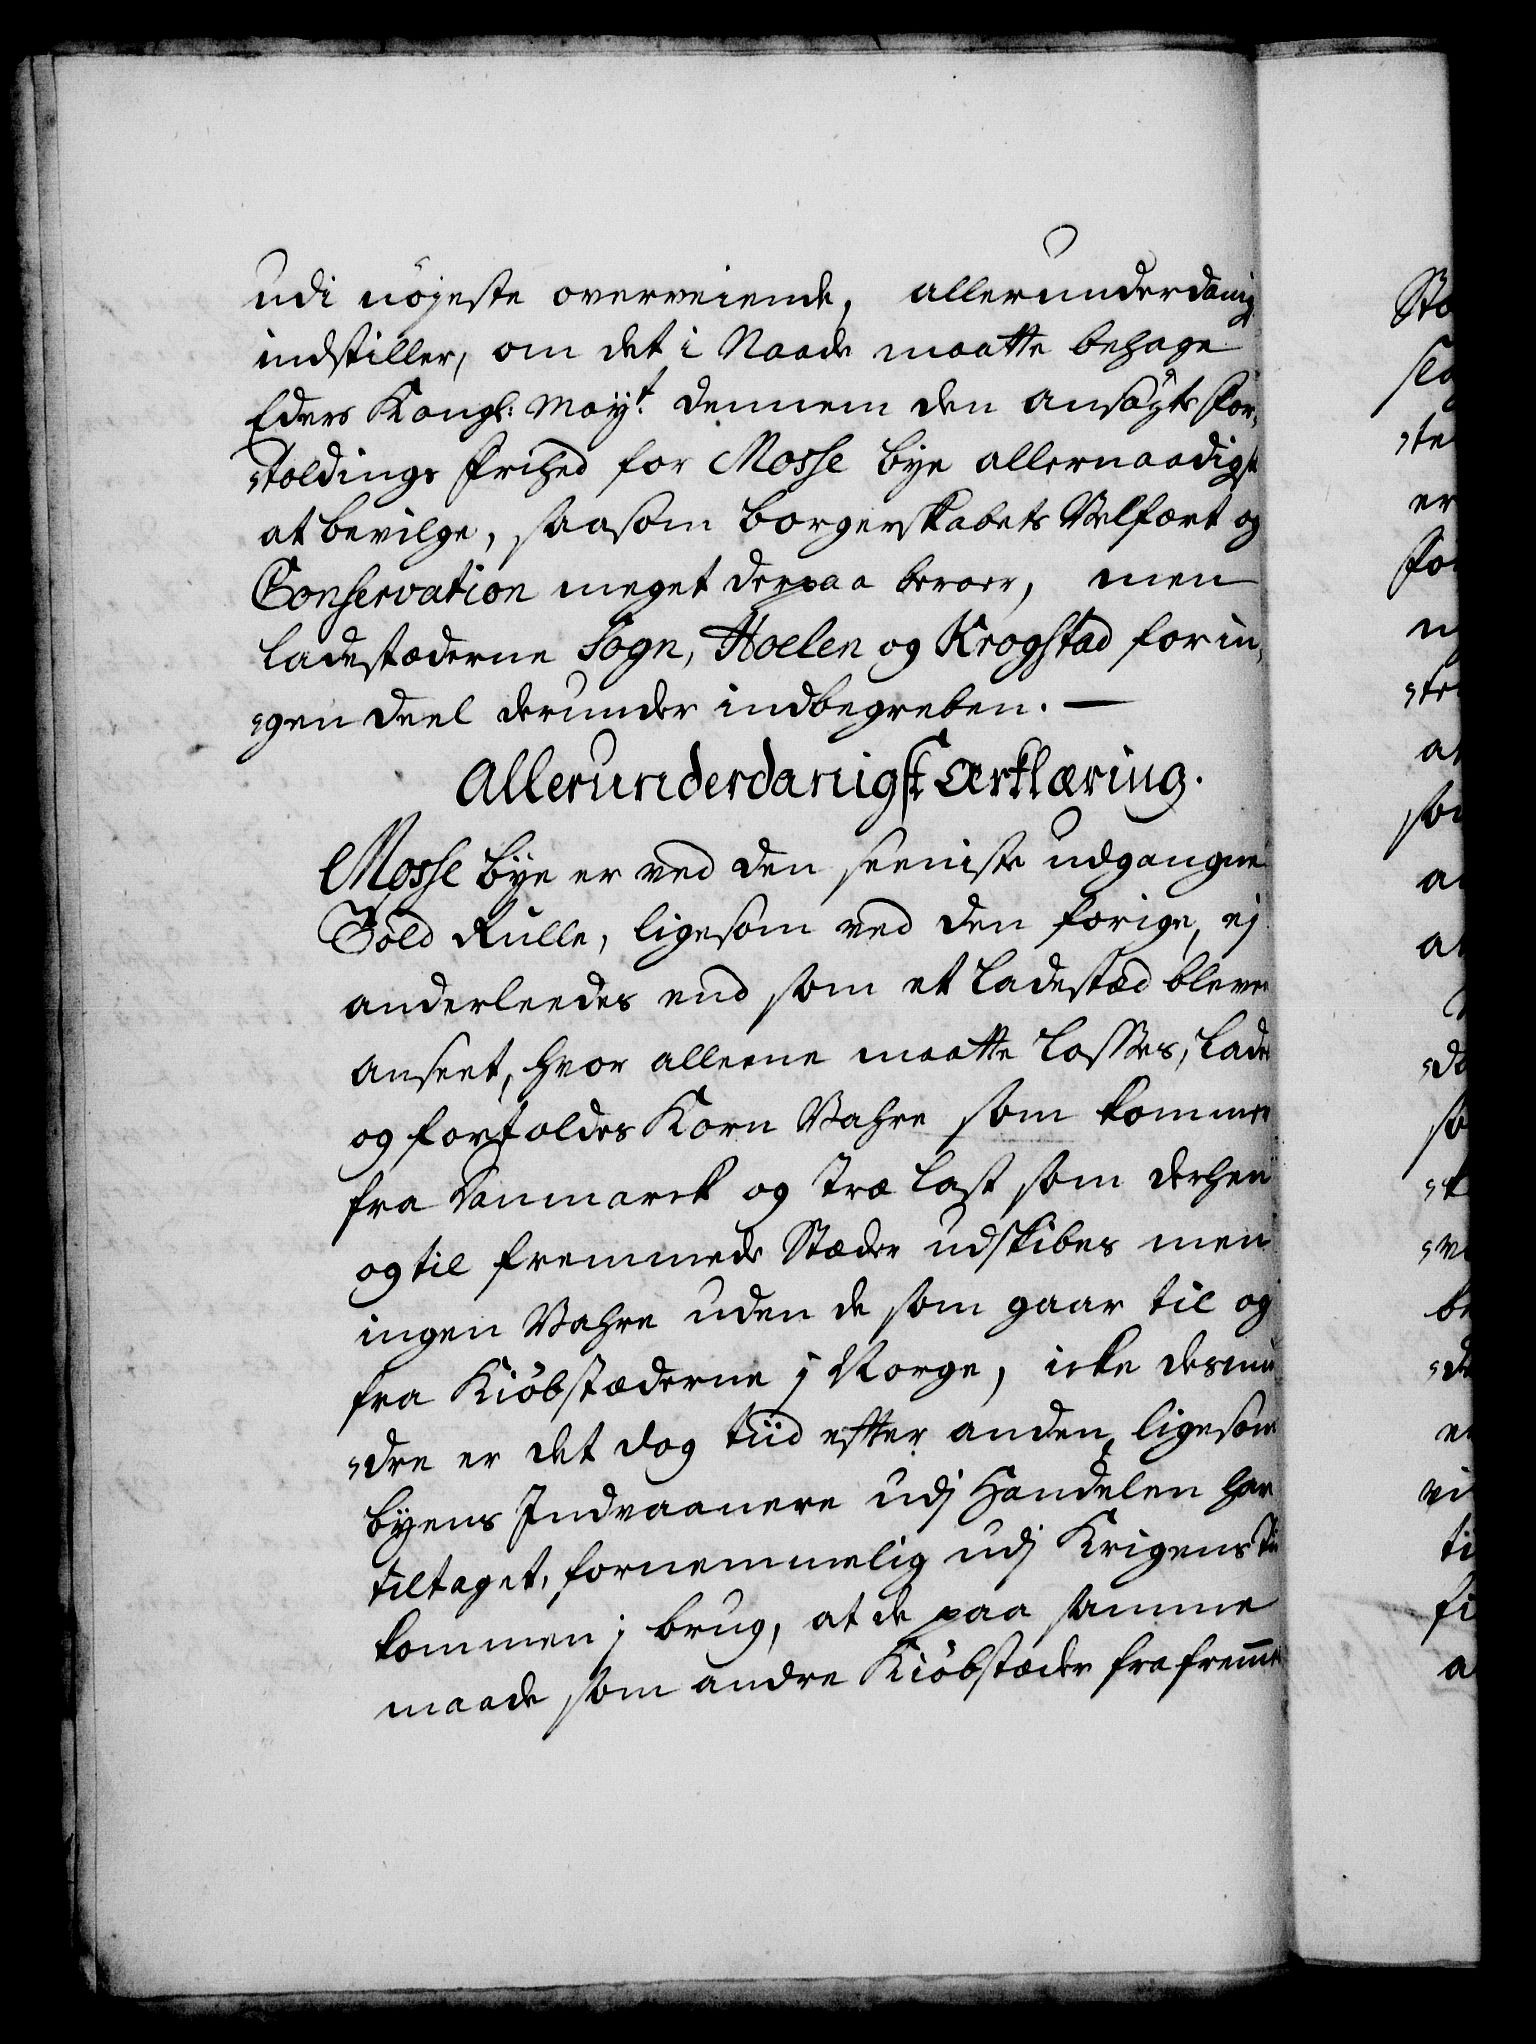 udi nöjeste overveiende, allerunderdanig
indstiller, om det i Naade maatte behage
Eders Kongl: Mayt. dennem den ansögte For¬
¬toldings Frihed for Mosse bye allernaadigst
at bevilge, saasom borgerskabets Velfært og
Conservation meget derpaa beroer, men
ladestæderne Sogn, Hoelen og Krogstad for in¬
¬gen deel derunder indbegreben. —
Allerunderdanigst Erklæring.
Mosse bye er ved den seeniste udgangne
Told Rulle, ligesom ved den forige, ej
anderleedes end som et Ladestæd bleven
anseet, hvor alleene maatte losses, lades
og fortoldes Korn Vahre som kommer
fra Danmarck og Træ last som derhen
og til fremmede Stæder udskibes men
ingen Vahre uden de som gaar til og
fra Kiöbstæderne j Norge, icke desmin
¬dre er det dog tiid efter anden, ligesom
byens Indvaanere udj Handelen har
tiltaget, fornemmelig udj Krigens Tii
kommen j brug, at de paa samme
maade som andre Kiöbstæder fra fremme